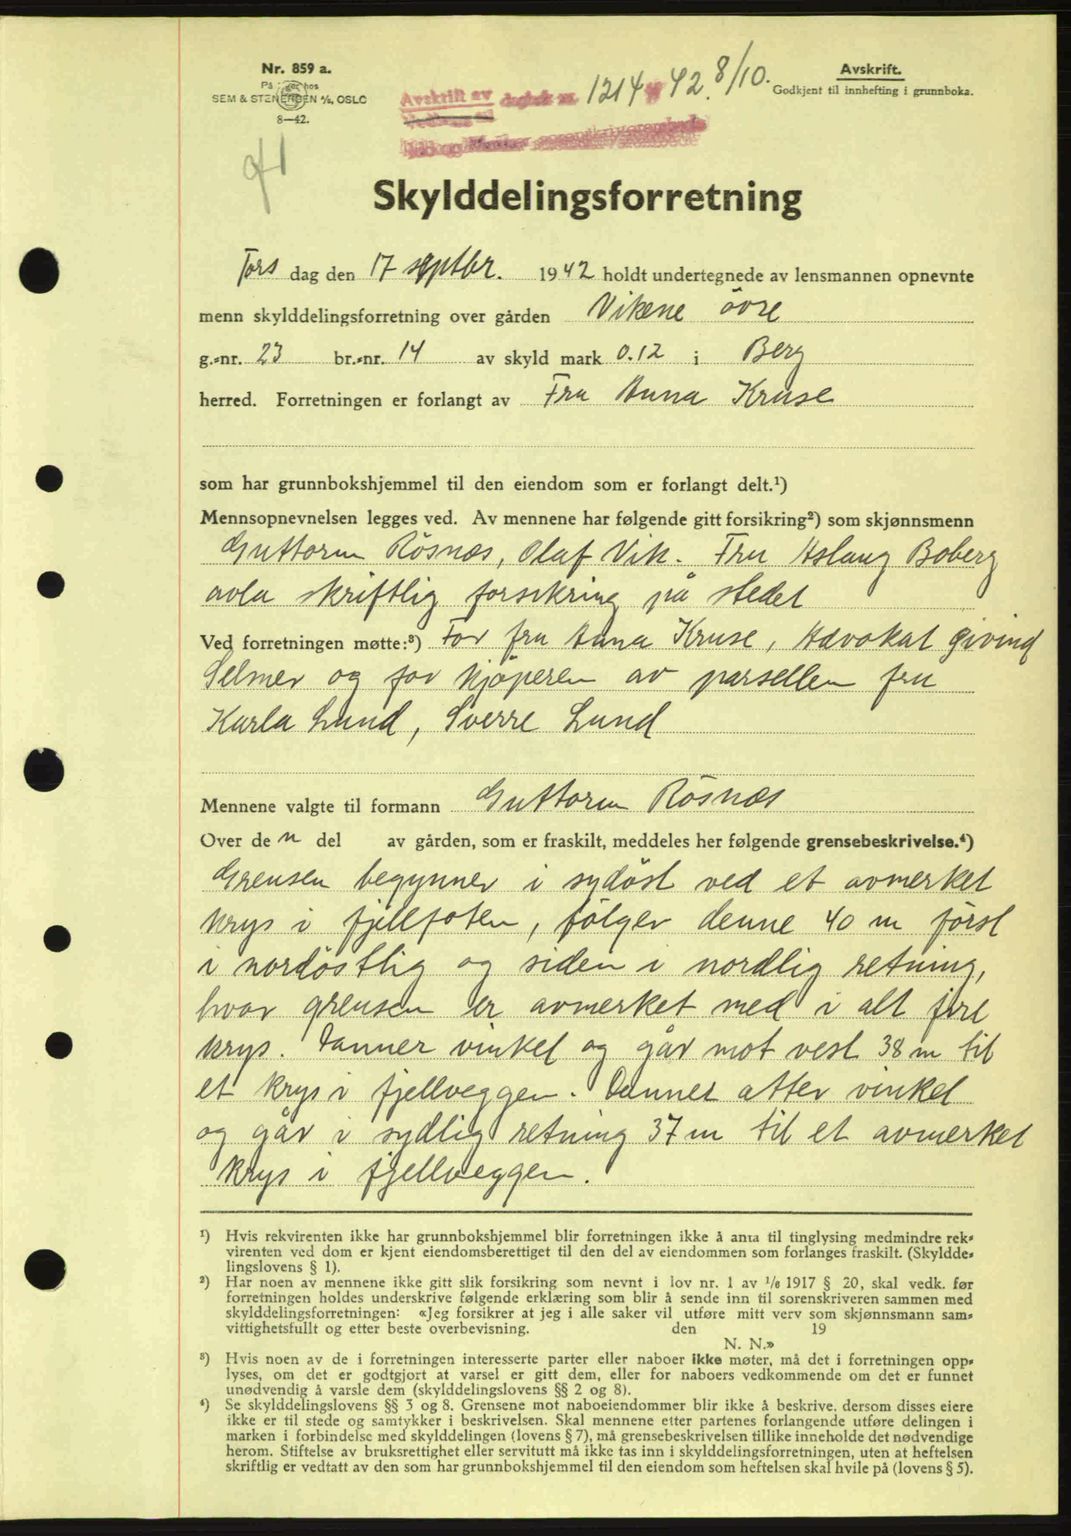 Nr. 859 a.
På lager hos
SEM & STENERSEN A/S, OSLO
8—42.
Avskrift av dagbok nr. 1214 42. 8/10.
Avskrift.
Godkjent til innhefting i grunnboka.
Skylddelingsforretning
Tors dag den 17 septbr. 1942 holdt undertegnede av lensmannen opnevnte
menn skylddelingsforretning over gården Vikene övre
g.-nr. 23 br.-nr. 14 av skyld mark 0.12 i Berg
herred. Forretningen er forlangt av Fru Anna Kruse
som har grunnbokshjemmel til den eiendom som er forlangt delt.¹)
Mennsopnevnelsen legges ved. Av mennene har følgende gitt forsikring²) som skjønnsmenn
Guttorm Rösnæs, Olaf Vik. Fru Aslaug Boberg
avla skriftlig forsikring på stedet
Ved forretningen møtte:³) For fru Anna Kruse, Advokat Eivind
Selmer og for kjöperen av parsellen fru
Karla Lund, Sverre Lund
Mennene valgte til formann Guttorm Rösnæs
Over de n del av gården, som er fraskilt, meddeles her følgende grensebeskrivelse.⁴)
Grensen begynner i sydöst ved et avmerket
krys i fjellfoten, fölger denne 40 m först
i nordöstlig og siden i nordlig retning,
hvor grensen er avmerket med i alt fire
krys. Danner vinkel og går mot vest 38 m til
et krys i fjellveggen. Danner atter vinkel
og går i sydlig retning 37 m til et avmerket
krys i fjellveggen.
¹) Hvis rekvirenten ikke har grunnbokshjemmel blir forretningen ikke å anta til tinglysing medmindre rek-
virenten ved dom er kjent eiendomsberettiget til den del av eiendommen som forlanges fraskilt. (Skyldde-
lingslovens § 1).
²) Har noen av mennene ikke gitt slik forsikring som nevnt i lov nr. 1 av 1/6 1917 § 20, skal vedk. før
forretningen holdes underskrive følgende erklæring som blir å sende inn til sorenskriveren sammen med
skylddelingsforretningen: «Jeg forsikrer at jeg i alle saker vil utføre mitt verv som skjønnsmann sam-
vittighetsfullt og etter beste overbevisning. den 19
N. N.»
³) Hvis noen av de i forretningen interesserte parter eller naboer ikke møter, må det i forretningen opp-
lyses, om det er godtgjort at varsel er gitt dem, eller for naboers vedkommende om det er funnet
unødvendig å varsle dem (skylddelingslovens §§ 2 og 8).
⁴) Se skylddelingslovens §§ 3 og 8. Grensene mot naboeiendommer blir ikke å beskrive, dersom disses eiere
ikke er til stede og samtykker i beskrivelsen. Skal mennene etter partenes forlangende utføre delingen i
marken i forbindelse med skylddelingen (lovens § 7), må grensebeskrivelsen tillike inneholde det nødvendige
herom. Stiftelse av bruksrettighet eller servitutt må ikke tas inn i skylddelingsforretningen, uten at heftelsen
skriftlig er vedtatt av den som har grunnbokshjemmel til den eiendom som heftelsen skal hvile på (lovens § 5).